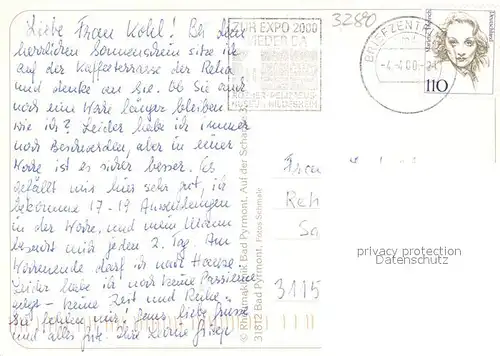 Liebe Frau Kohl! Bei dem
herrlichen Sonnenschein sitze ich
auf der Kaffeeterrasse der Reha
und denke an Sie. Ob Sie auch
noch eine Woche länger bleiben
wie ich? Leider habe ich immer
noch Beschwerden, aber in einer
Woche ist es sicher besser. Es
gefällt mir hier sehr gut, ich
bekomme 17-19 Anwendungen
in der Woche, und mein Mann
besucht mich jeden 2. Tag. Am
Wochenende darf ich nach Hause.
Leider habe ich noch keine Passiene
gelegt - keine Zeit und Ruhe.
Sie fehlen mir! Ganz liebe Grüsse
und alles Gute. Ihre
© Rheumaklinik Bad Pyrmont, Auf der
31812 Bad Pyrmont, Fotos Schmale
ZUR EXPO 2000
WIEDER DA
ROEMER-PELIZAEUS-
MUSEUM HILDESHEIM
32890
BRIEFZENTR
-4.-4.00-21
Deutschland
Marlene Dietrich
110
Frau
Reh
Sa
3115
privacy protection
Datenschutz